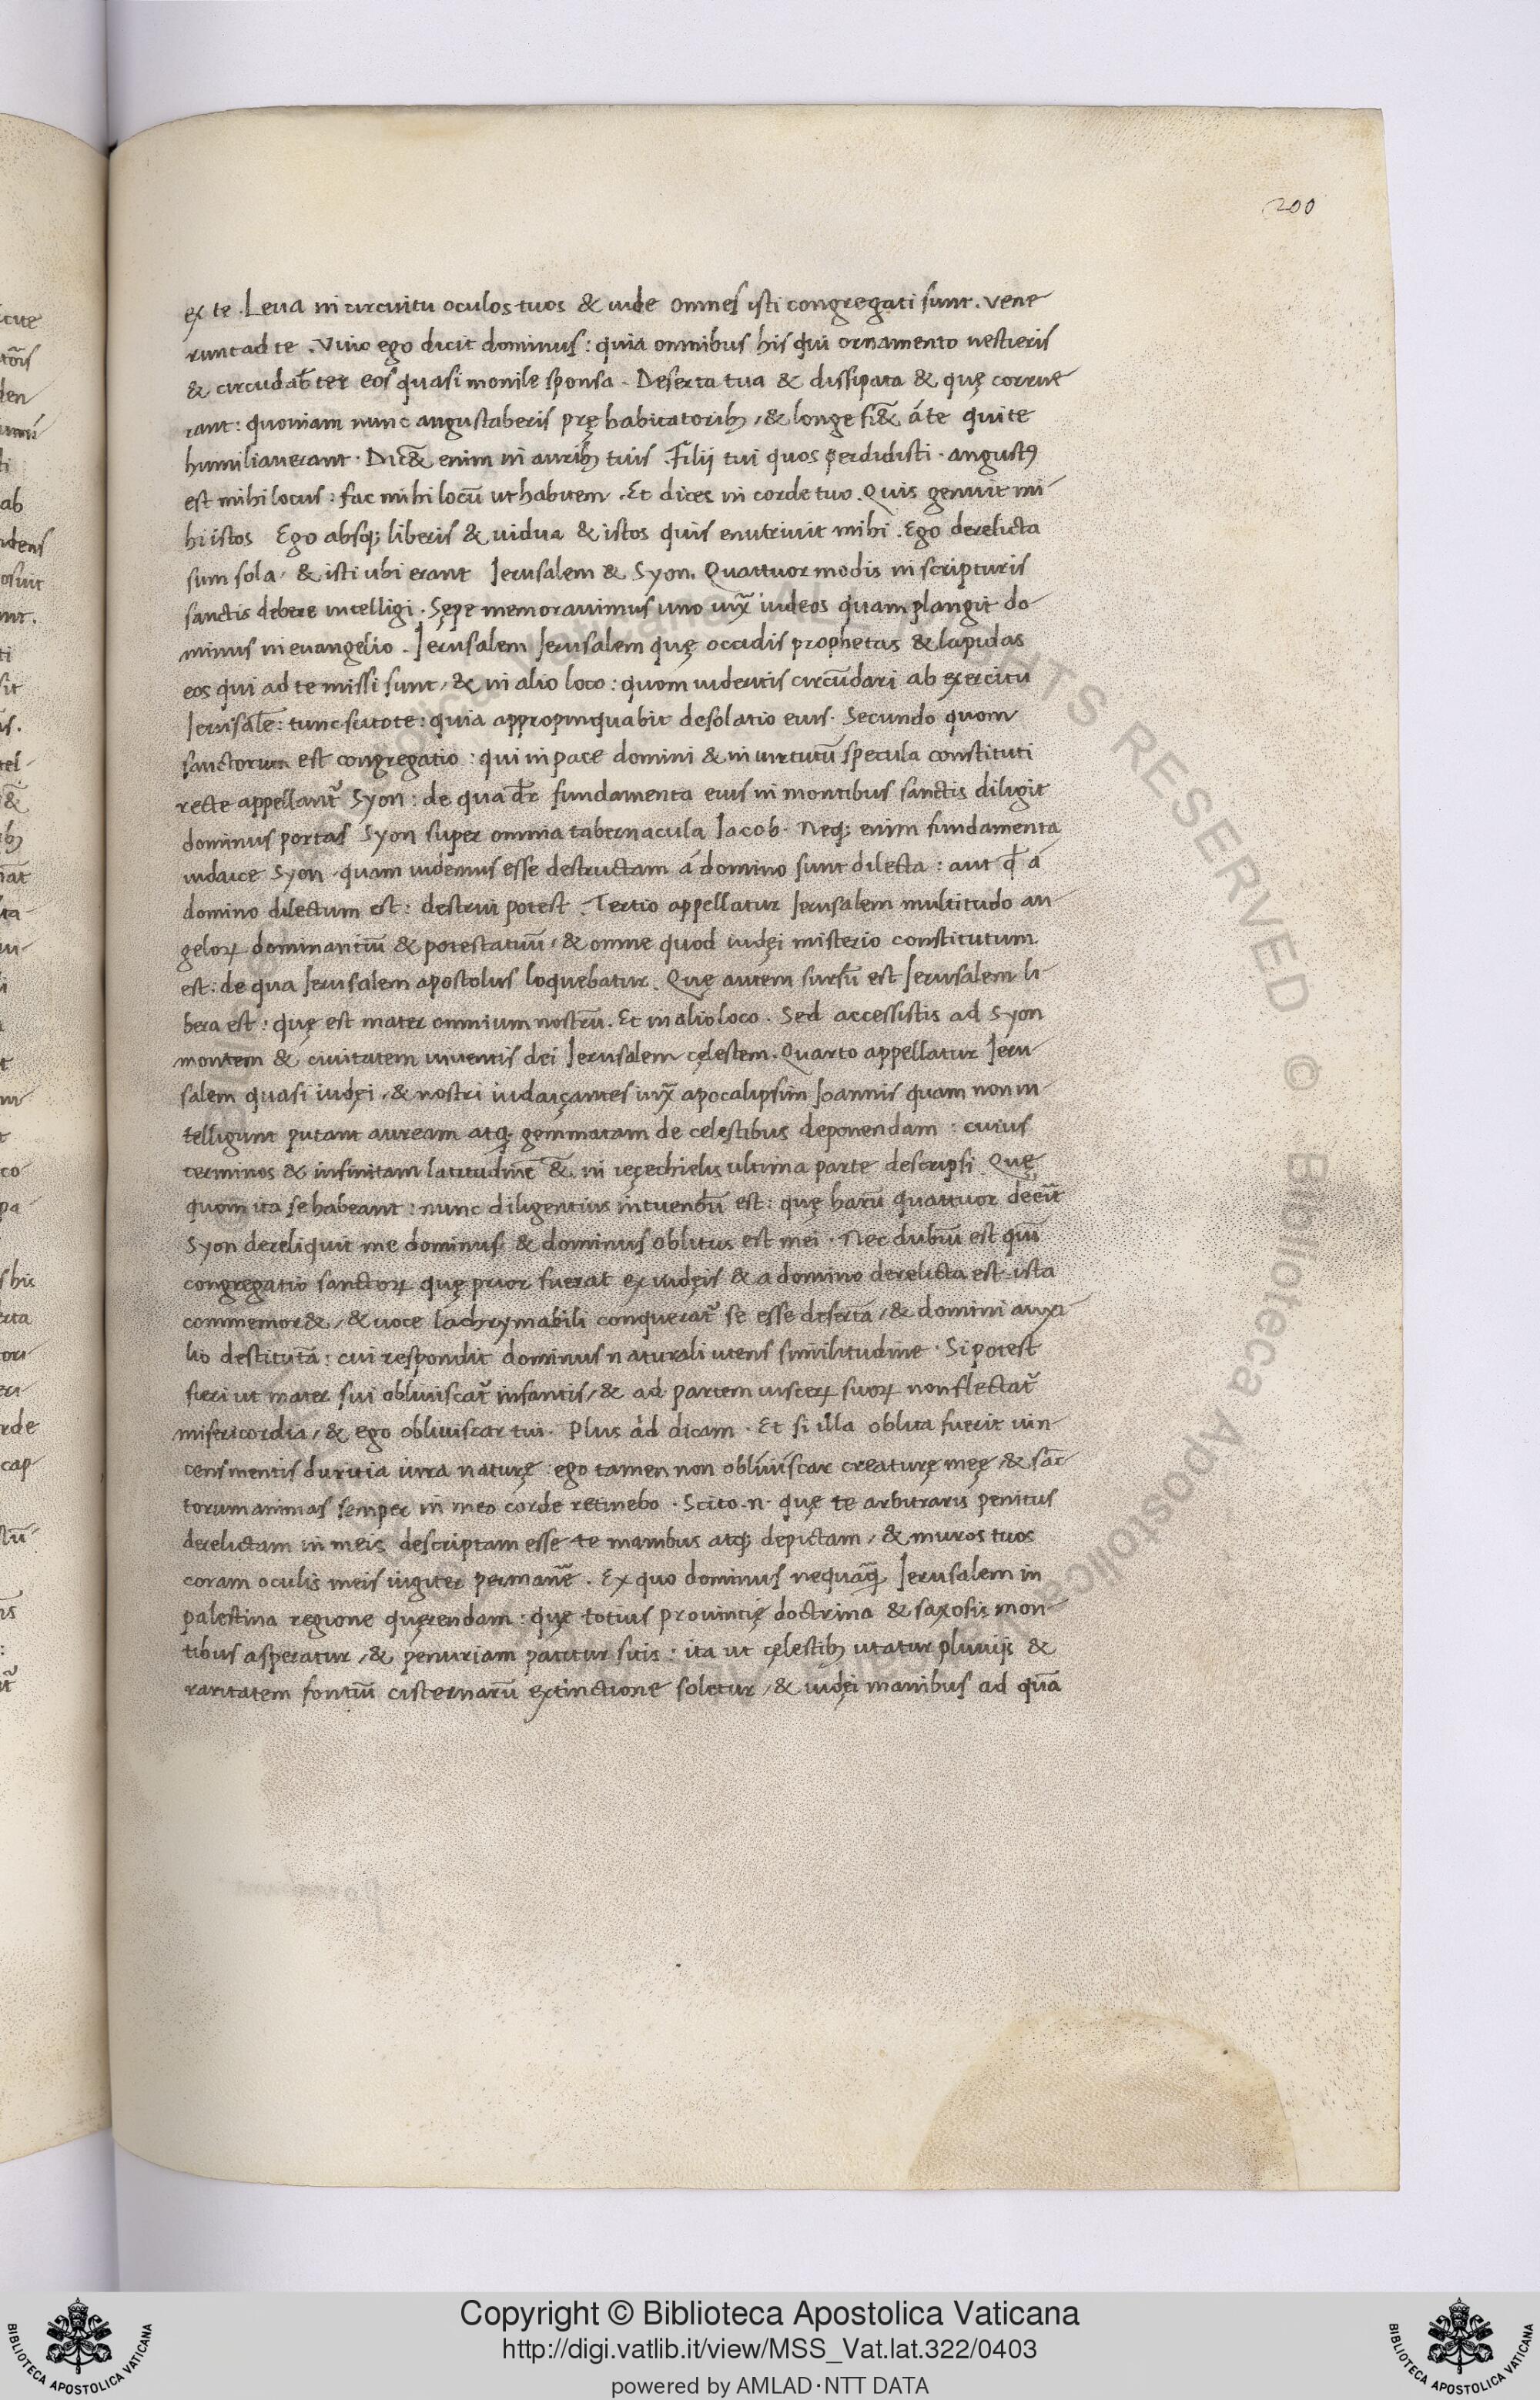 200
ex te . Leua in circuitu oculos tuos & uide omnes isti congregati sunt . vene
runt ad te . Viuo ego dicit dominus : quia omnibus his qui ornamento uestieris
& circūdab̄ter eos quasi monile sponsa . Deserta tua & dissipata & quę corrue
rant : quoniam nunc angustaberis prę habitatorib; , & longe fi&̄ á te qui te
humiliauerant . Dic&̄ enim in aurib; tuis . Filij tui quos perdidisti . angustꝰ
est mihi locus : fac mihi locū ut habitem . Et dices in corde tuo . Quis genuit mi
hi istos Ego absq; liberis & uidua & istos quis enutriuit mihi . Ego derelicta
sum sola , & isti ubi erant Jerusalem & Syon . Quattuor modis in scripturis
sanctis debere intelligi . Sępe memorauimus uno iux̄ iudeos quam plangit do
minus in euangelio . Jerusalem Jerusalem quę occidis prophetas & lapidas
eos qui ad te missi sunt , & in alio loco : quom uideritis circūdari ab exercitu
Jerusalē : tunc scitote : quia appropinquabit desolatio eius . Secundo quom
sanctorum est congregatio : qui in pace domini & in uirtutū specula constituti
recte appellant᷑ Syon : de qua dr̄ fundamenta eius in montibus sanctis diligit
dominus portas Syon super omnia tabernacula Iacob . Neq; enim fundamenta
iudaice Syon , quam uidemus esse destructam á domino sunt dilecta : aut qd̄ á
domino dilectum est : destrui potest . Tertio appellatur Jerusalem multitudo an
geloꝝ dominantiū & potestatuū , & omne quod iudęi misterio constitutum
est : de qua Jerusalem apostolus loquebatur . Quę autem sursū est Jerusalem li
bera est : quę est mater omnium nostrū . Et in alio loco . Sed accessistis ad Syon
montem & ciuitatem uiuentis dei Jerusalem cęlestem . Quarto appellatur Jeru
salem quasi iudęi , & nostri iudaiçantes iux̄ apocalipsim Joannis quam non in
telligunt putant auream atq; gemmatam de celestibus deponendam : cuius
terminos & infinitam latitudinē &̄ in ieçechielis ultima parte descripsi Quę
quom ita se habeant : nunc diligentius intuendū est : quę harū quattuor
Syon dereliquit me dominus & dominus oblitus est mei . Nec dubiū est quī
congregatio sanctoꝝ quę prior fuerat ex iudęis & a domino derelicta est ista
commemor& , & uoce lachrymabili conquerat᷑ se esse desertā , & domini auxi
lio destitutā : cui respondit dominus naturali utens similitudine . Si potest
fieri ut mater sui obliuiscat᷑ infantis , & ad partem uisceꝝ suoꝝ non flectat᷑
misericordia , & ego obliuiscar tui . Plus ad dicam . Et si illa oblita fuerit uin
cens mentis duritia iura naturę : ego tamen non obliuiscar creaturę meę , & sāc
torum animas semper in meo corde retinebo . Scito .n. quę te arbitraris penitus
derelictam in meis descriptam esse te manibus atq; depictam , & muros tuos
coram oculis meis iugiter permanē . Ex quo dominus nequaq̄ Jerusalem in
palestina regione quęrendam : quę totius prouincię doctrina & saxosis mon
tibus asperatur , & penuriam patitur sitis : ita ut cęlestib; utatur pluuijs &
raritatem fontiū cisternarū extinctione soletur , & iudęi manibus ad quā
Copyright © Biblioteca Apostolica Vaticana
http://digi.vatlib.it/view/MSS_Vat.lat.322/0403
powered by AMLAD·NTT DATA